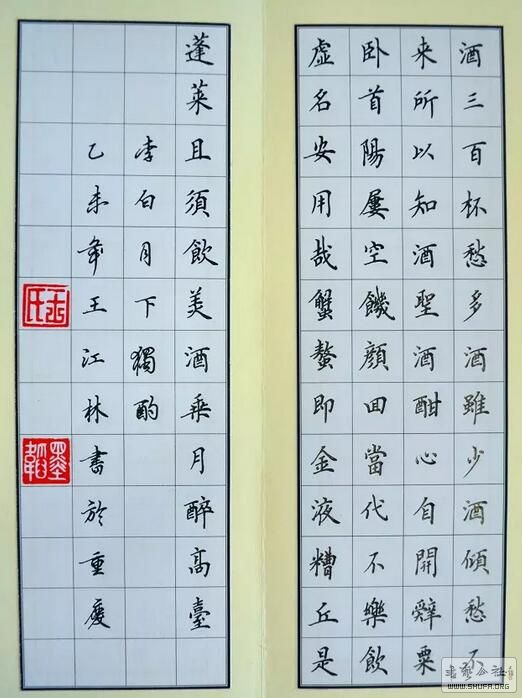 酒三百杯愁多酒雖少酒傾愁不
来所以知酒聖酒酣心自開辭粟
卧首陽屢空饑顏回當代不樂飲
虛名安用哉蟹螯即金液糟丘是
蓬莱且須飲美酒乘月醉高臺
李白月下獨酌
乙未年王江林書於重慶
WWW.SHUFA.ORG